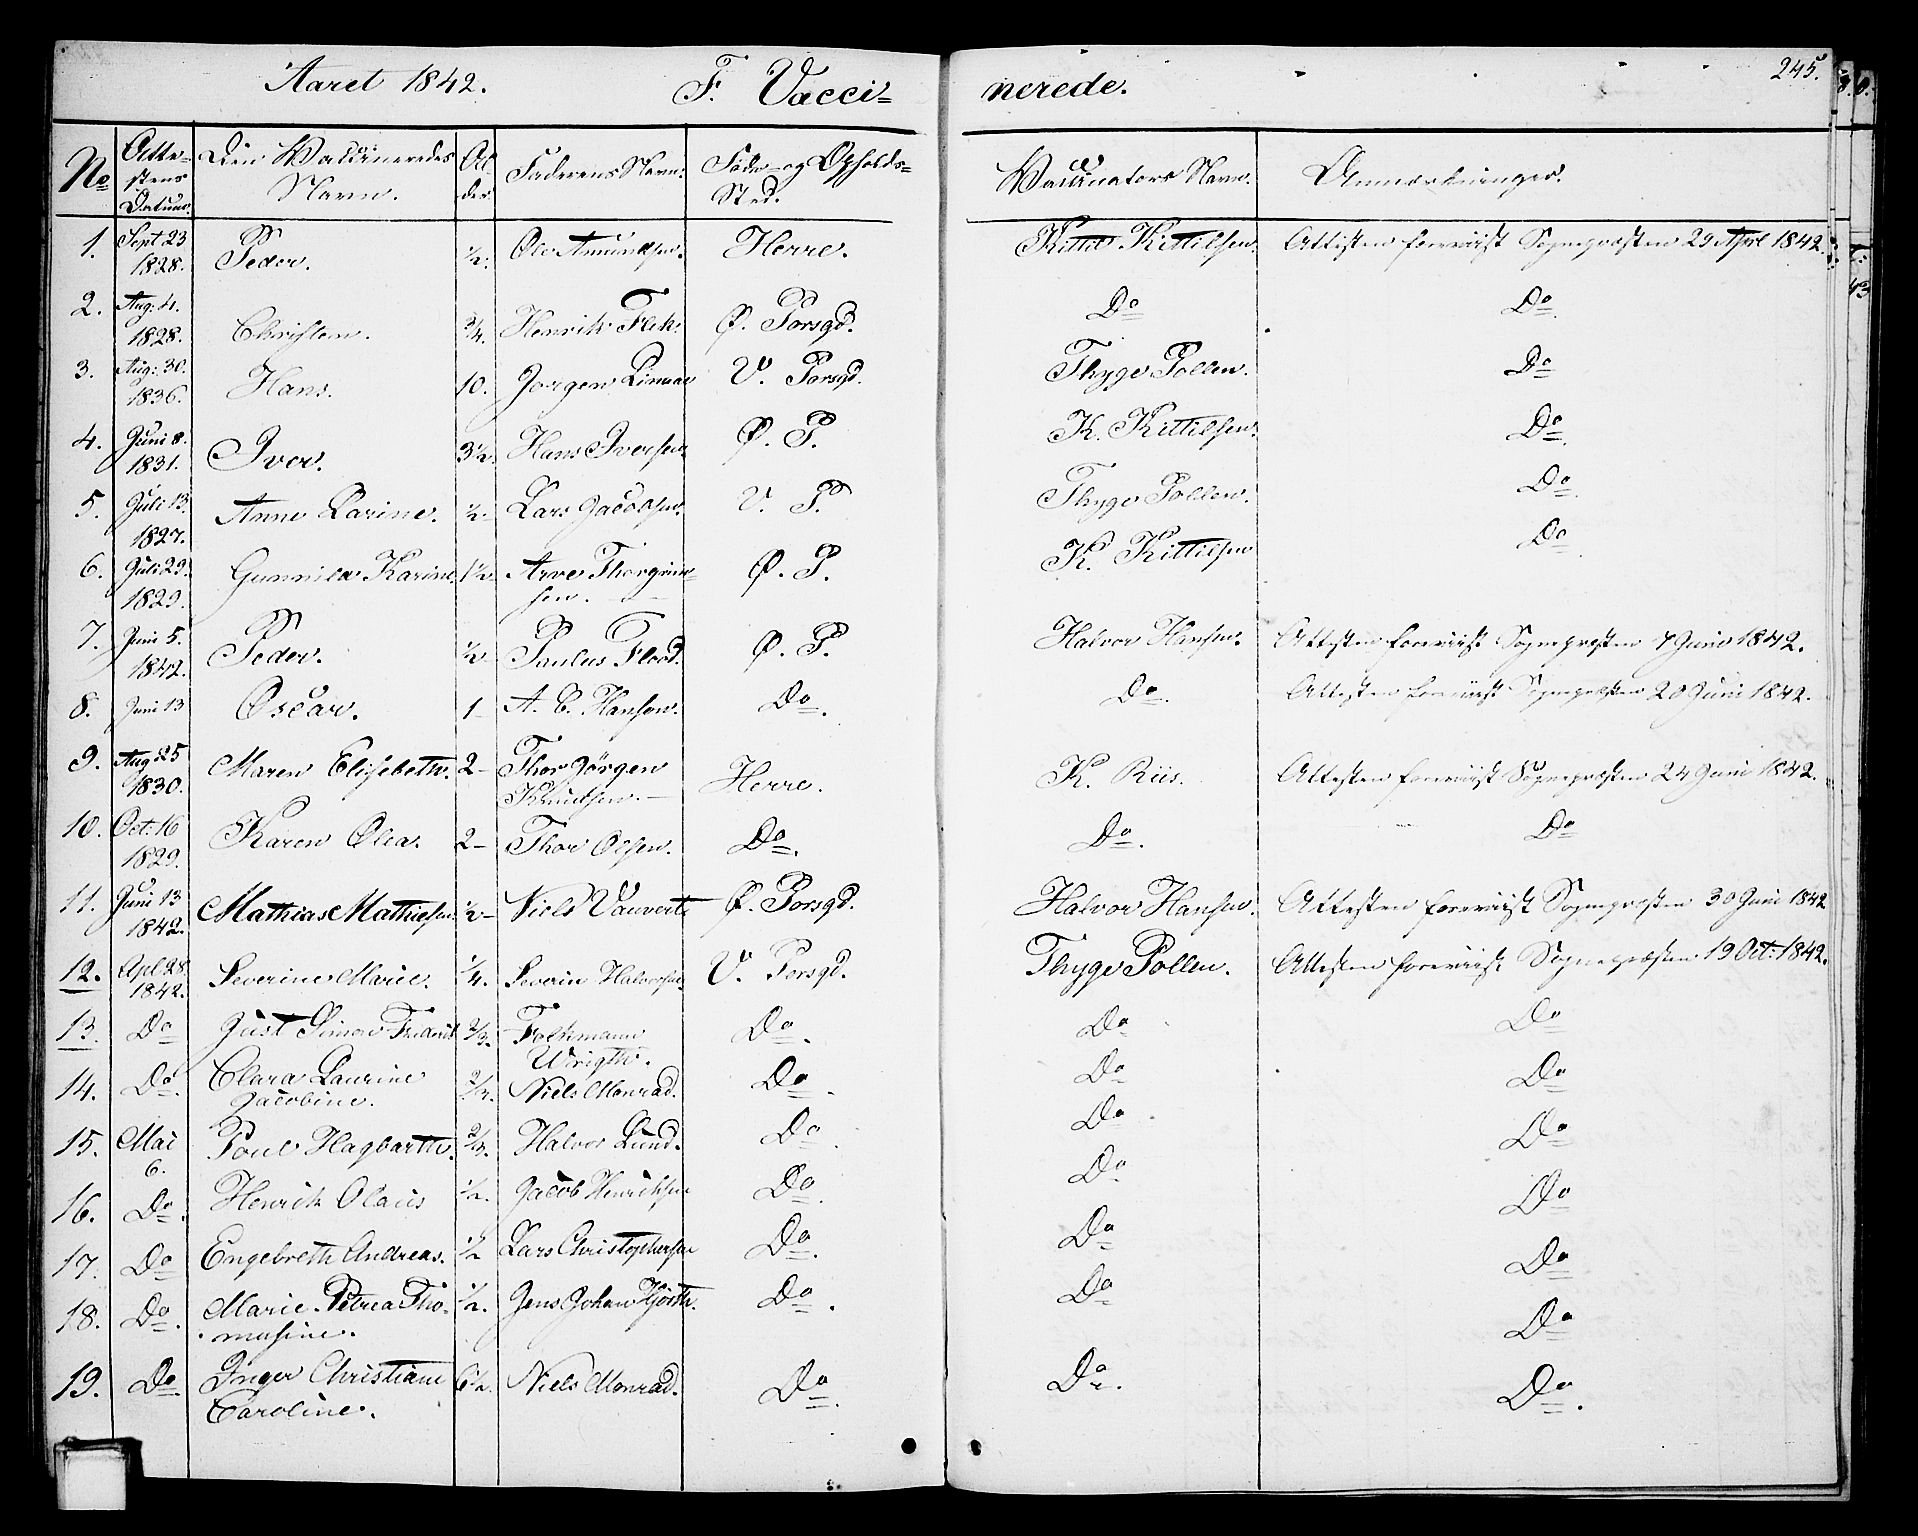 Aaret 1842. F. Vacci= nerede. 245.
No Atte-stens Datum. Den Vaccineredes Navn. Al-der. Faderens Navn. Føde- og Opholds=Sted. Vaccinators Navn. Anmærkninger.
1. Sept 23 1828. Peder. 1/2. Ole Amundsen. Herre. Kittil Kittilsen. Attesten foreviist Sognepræsten 29 Apl 1842.
2. Aug: 4. 1828. Christen. 3/4. Henrik Flek. Ø. Porsgd. Do Do
3. Aug: 30. 1836. Hans. 10. Jørgen Linaae V. Porsgd. Thyge Pollen. Do
4. Juni 8. 1831. Iver. 3 1/2. Hans Iversen. Ø. P. K. Kittilsen. Do
5. Juli 13. 1827. Anne Karine. 1/2 Lars Jacobsen. V. P. Thyge Pollen. Do
6. Juli 29. 1829. Gunnild Karine. 1 1/2 Arve Thorgrim-sen. Ø. P. K. Kittilsen Do
7. Juni 5. 1842. Peder. 1/2 Paulus Flood. Ø. P. Halvor Hansen. Attesten foreviist Sognepræsten 7 Juni 1842.
8. Juni 13 Oscar. 1 A. C. Hansen. Do. Do. Attesten foreviist Sognepræsten 20 Juni 1842.
9. Aug 25 1830. Maren Elisabeth. 2 Thor Jörgen Knudsen. Herre. K. Riis. Attesten foreviist Sognepræsten 24 Juni 1842.
10. Oct: 16 1829. Karen Olea. 2 Thor Olsen. Do. Do. Do
11. Juni 13 1842. Mathias Mathiesen. 1/2 Niels Vauvert Ø. Porsgd. Halvor Hansen. Attesten foreviist Sognepræsten 30 Juni 1842
12. Apl 28. 1842. Severine Marie. 1/4. Severin Halvorsen. V. Porsgd. Thyge Pollen. Attesten foreviist Sognepræsten 19 Oct: 1842.
13. Do Just Simon Friderik 2/3. Folkmann Wrigth. Do. Do Do
14. Do. Clara Laurine Jacobine. 2/3. Niels Monrad. Do. Do Do
15. Mai 6. Poul Hagbarth. 2/3. Halvor Lund. Do. Do. Do
16. Do. Henrik Olaus 1/2. Jacob Henriksen Do. Do Do
17. Do Engebreth Andreas. 1/2 Lars Christophersen Do. Do Do
18. Do. Marie Petrea Tho-masine. 1/2. Jens Johan Hjorth. Do. Do Do
19. Do Inger Christiane Caroline. 6 1/2. Niels Monrad. Do. Do. Do.